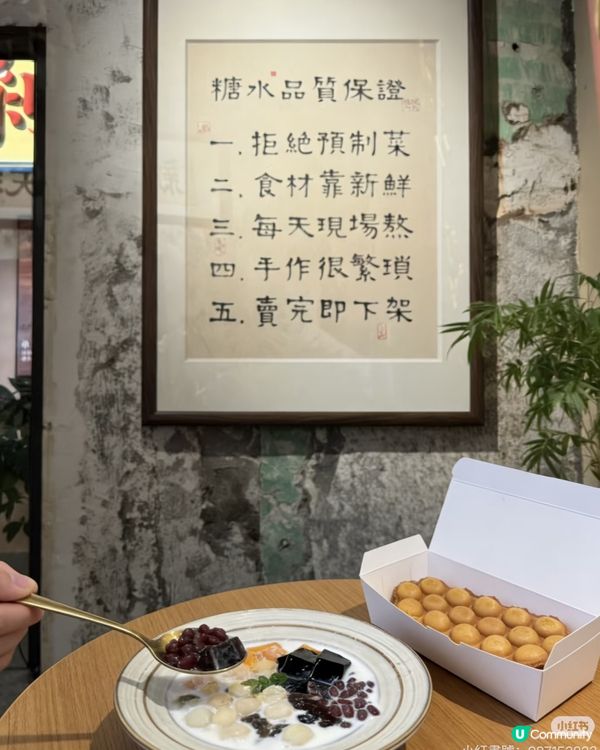 糖水品質保證
一. 拒絕預制菜
二. 食材靠新鮮
三. 每天現場熬
四. 手作很繁瑣
五. 賣完即下架
小红书
U Community